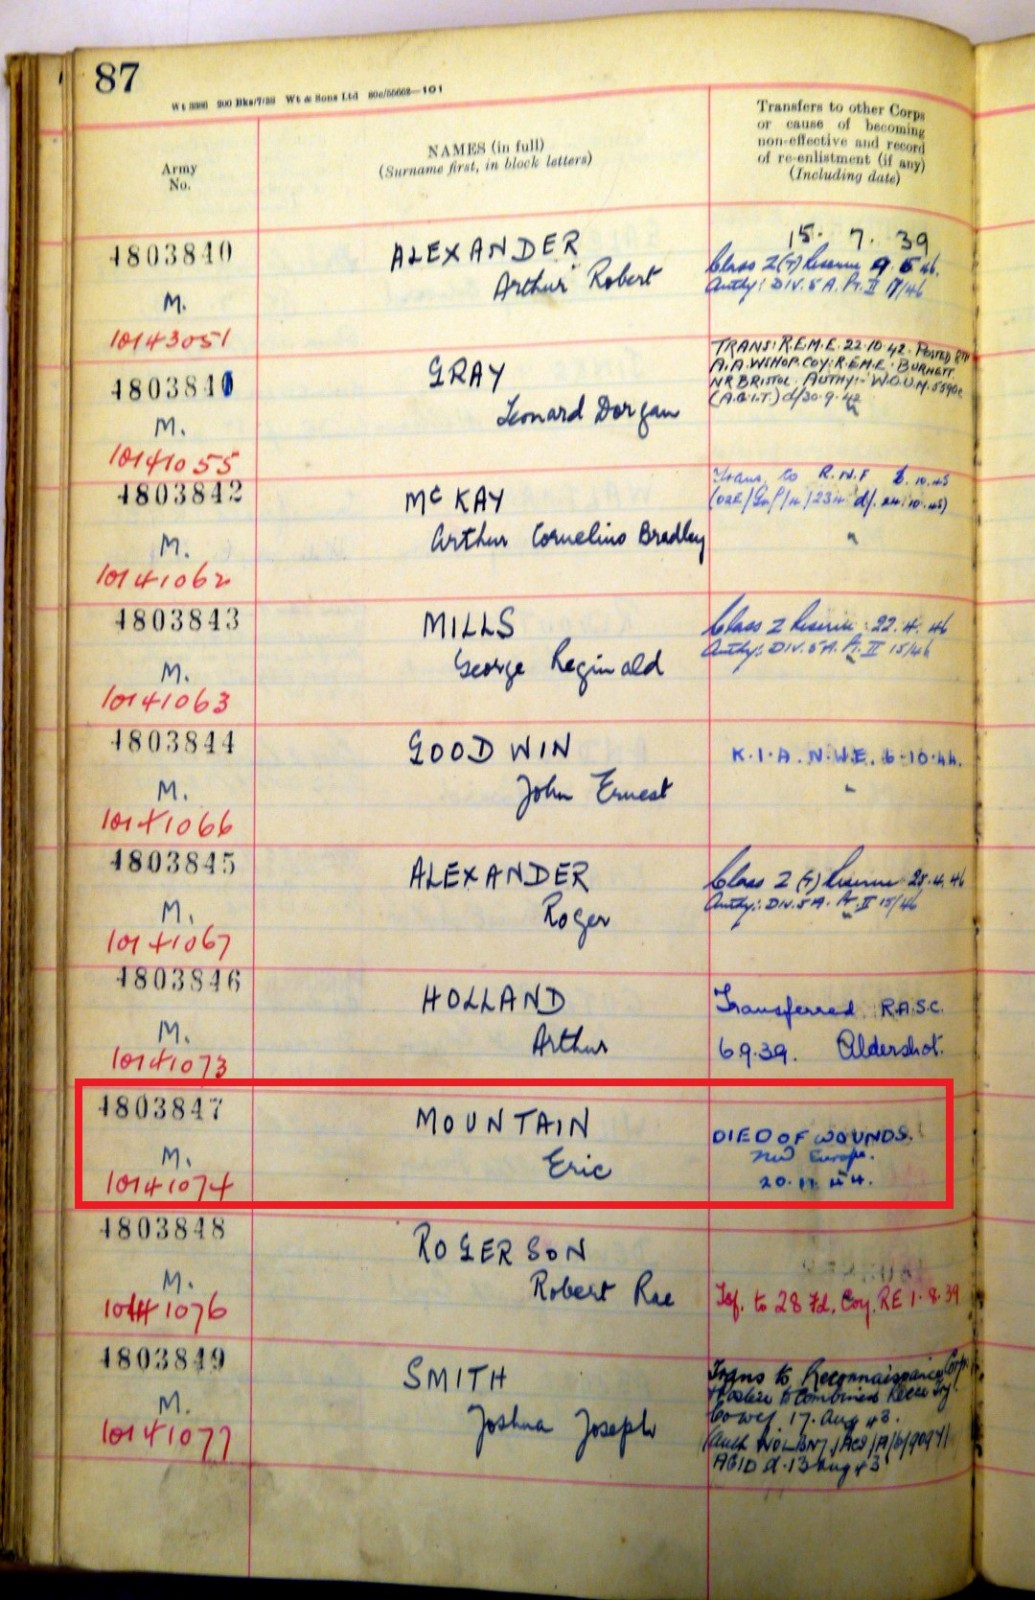 87
Wt 3980 200 Bks/7/39 Wt & Sons Ltd 80c/55668—101
Army
No.
NAMES (in full)
(Surname first, in block letters)
Transfers to other Corps
or cause of becoming
non-effective and record
of re-enlistment (if any)
(Including date)
4803840
M.
10143051
ALEXANDER
Arthur Robert
15. 7. 39
Class Z(T) Reserve 9.5.46.
Authy: DIV. 5A. Pt. II 17/46
4803841
M.
10141055
GRAY
Leonard Dorgan
TRANS: R.E.M.E. 22.10.42. POSTED 8TH
A.A. WSHOP. COY: R.E.M.E. BURNETT
NR BRISTOL. AUTHY:- W.O.U.M.
(A.G.I.T.) d/30.9.42
4803842
M.
10141062
McKAY
Arthur Cornelius Bradley
Trans. to R.N.F 10.45
4803843
M.
10141063
MILLS
George Reginald
Class Z Reserve 22.4.46
Authy: DIV. 5A. Pt. II 15/46
4803844
M.
10141066
GOODWIN
John Ernest
K.I.A. N.W.E. 6.10.44.
4803845
M.
10141067
ALEXANDER
Roger
Class Z (T) Reserve 28.4.46
Authy: DIV. 5A. Pt. II 15/46
4803846
M.
10141073
HOLLAND
Arthur
Transferred R.A.S.C.
6.9.39. Aldershot.
4803847
M.
10141074
MOUNTAIN
Eric
DIED OF WOUNDS.
NW Europe.
20.11.44.
4803848
M.
10141076
ROGERSON
Robert Rae
Tsf. to 28 Fd. Coy. RE 1.8.39
4803849
M.
10141077
SMITH
Joshua Joseph
Trans to Reconnaissance Corps
Posted to Combined Recce Trg.
17. Aug 43.
AG1D d. 13 Aug 43